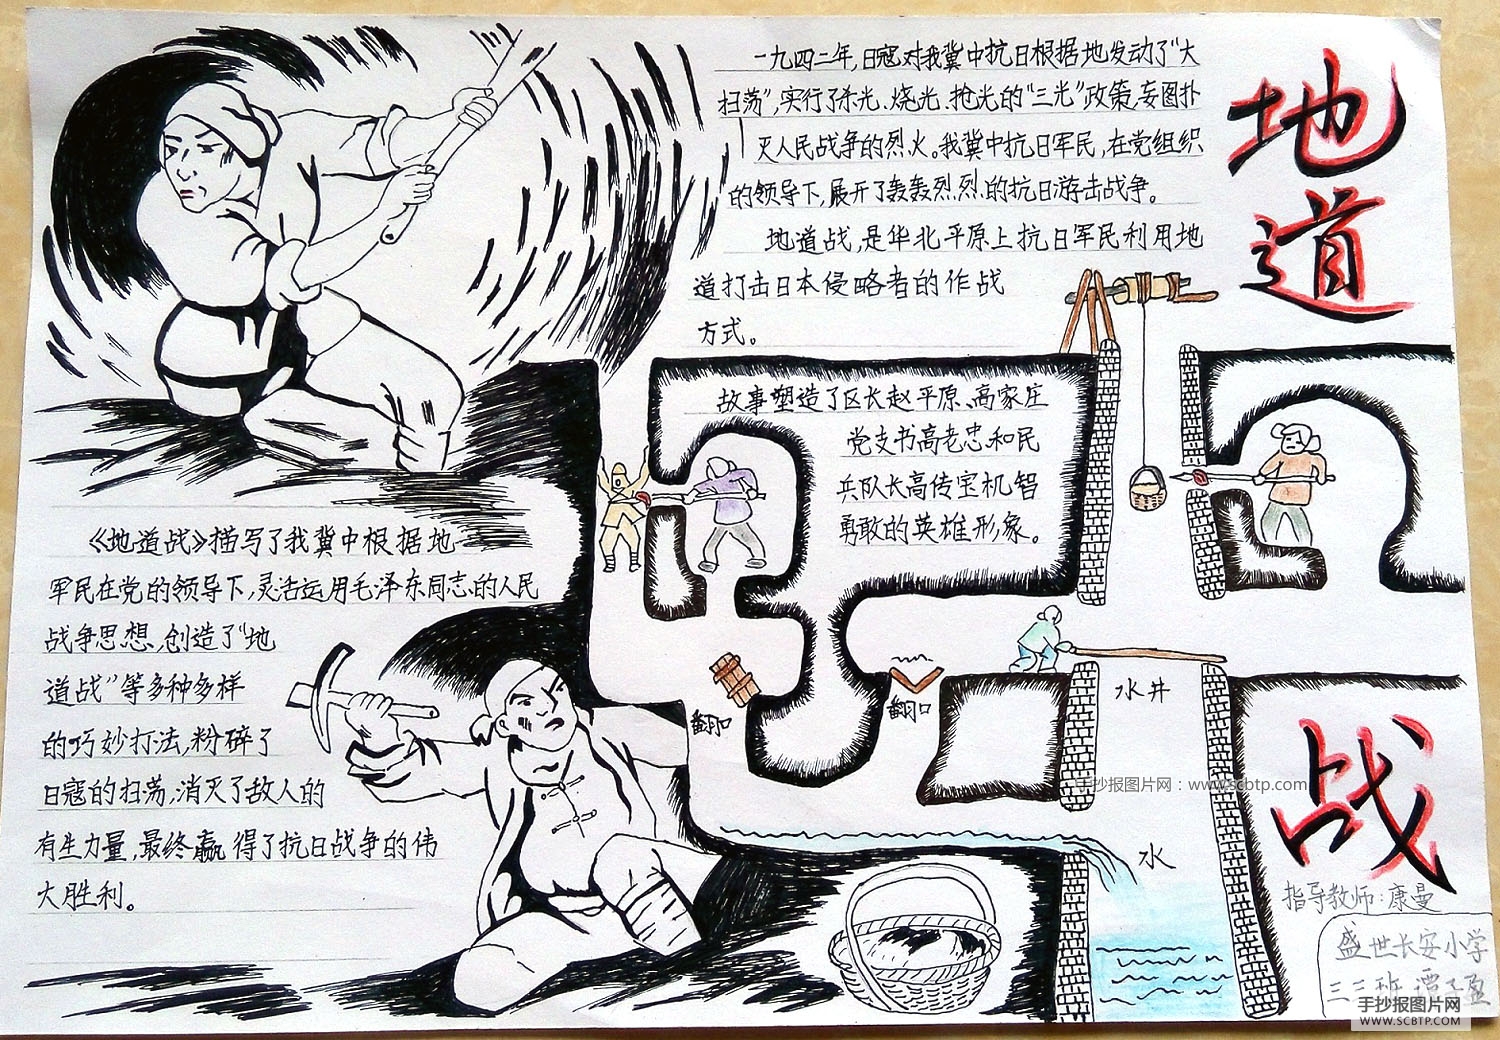 一九四二年,日寇对我冀中抗日根据地发动了“大
扫荡”,实行了杀光、烧光、抢光的“三光”政策,妄图扑
灭人民战争的烈火。我冀中抗日军民,在党组织
的领导下,展开了轰轰烈烈的抗日游击战争。
地道战,是华北平原上抗日军民利用地
道打击日本侵略者的作战
方式。
地道战
故事塑造了区长赵平原、高家庄
党支书高老忠和民
兵队长高传宝机智
勇敢的英雄形象。
《地道战》描写了我冀中根据地
军民在党的领导下,灵活运用毛泽东同志的人民
战争思想,创造了“地
道战”等多种多样
的巧妙打法,粉碎了
日寇的扫荡,消灭了敌人的
有生力量,最终赢得了抗日战争的伟
大胜利。
翻口
翻口
水井
水
手抄报图片网:www.scbtp.com
指导教师:康曼
盛世长安小学
三二班
手抄报图片网
WWW.SCBTP.COM